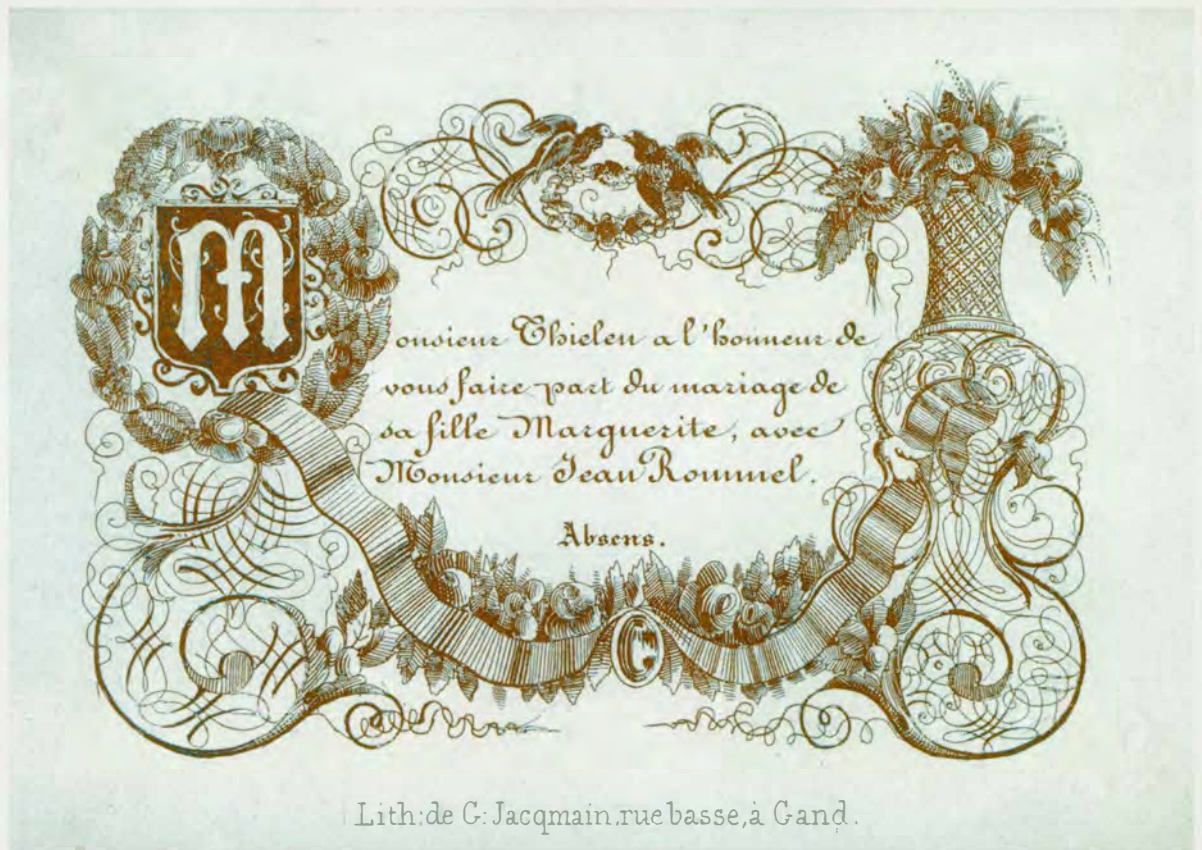 Monsieur Thielen a l'honneur de
vous faire part du mariage de
sa fille Marguerite, avec
Monsieur Jean Rommel.
Absens.
Lith: de G: Jacqmain, rue basse, à Gand.